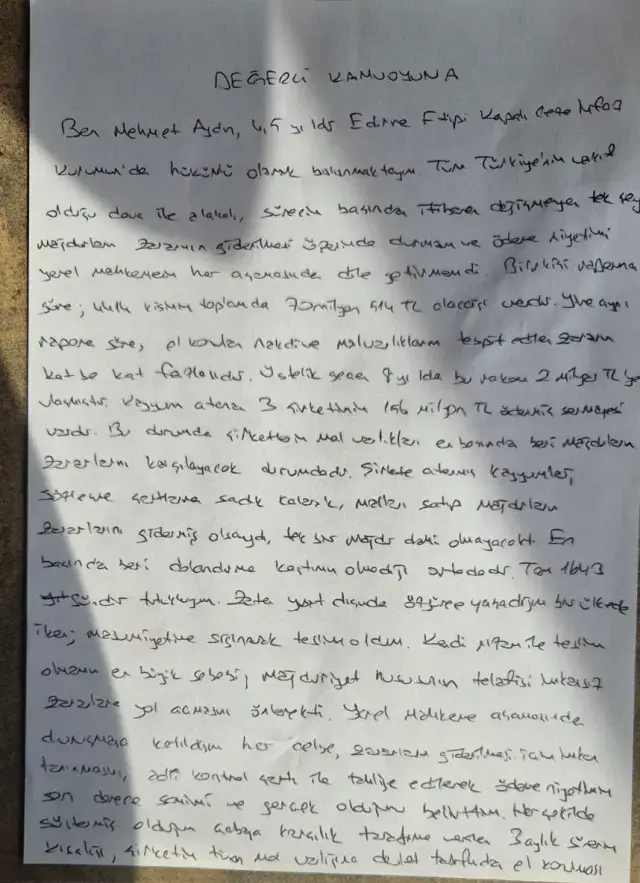 DEĞERLİ KAMUOYUNA
Ben Mehmet Aydın, 4,5 yıldır Edirne F tipi Kapalı Ceza İnfaz
Kurumun'da hükümlü olarak bulunmaktayım. Tüm Türkiye'nin vakıf
olduğu dava ile alakalı, sürecin başından itibaren değişmeyen tek şey
mağdurların zararının giderilmesi üzerinde durmam ve ödeme niyetimi
yerel mahkemenin her aşamasında dile getirmemdi. Bilirkişi raporuna
göre; kişinin toplamda 70 milyon 514 TL alacağı vardır. Yine aynı
rapora göre, el konulan nakdi ve malvarlıklarım tespit edilen zararın
kat be kat fazlasıdır. Üstelik geçen 4 yılda bu rakam 2 Milyar TL'ye
ulaşmıştır. Kayyum atanan 3 şirketimin 156 Milyon TL ödenmiş sermayesi
vardır. Bu durumda şirketlerin mal varlıkları en başından beri mağdurların
zararlarını karşılayacak durumdadır. Şirkete atanmış kayyumlar,
sözleşme şartlarına sadık kalarak, malları satıp mağdurların
zararlarını gidermiş olsaydı, tek bir mağdur dahi olmayacaktı. En
başından beri dolandırma kastımın olmadığı ortadadır. Tam 1643
gündür tutukluyum. Zaten yurt dışında özgürce yaşadığım bir ülkede
iken; masumiyetime sığınarak teslim oldum. Kendi rızam ile teslim
olmamın en büyük sebebi, mağduriyet hususunun telafisi imkansız
zararlara yol açmasını önlemekti. Yerel Mahkeme aşamasında
duruşmaya katıldığım her celse, zararların giderilmesi için imkan
tanınmasını, adli kontrol şartı ile tahliye edilerek ödeme niyetimin
son derece samimi ve gerçek olduğunu belirttim. Her şekilde
göstermiş olduğum çabaya karşılık tarafıma verilen 3 aylık sürenin
kısalığı, şirketin tüm mal varlığına devlet tarafından el konması